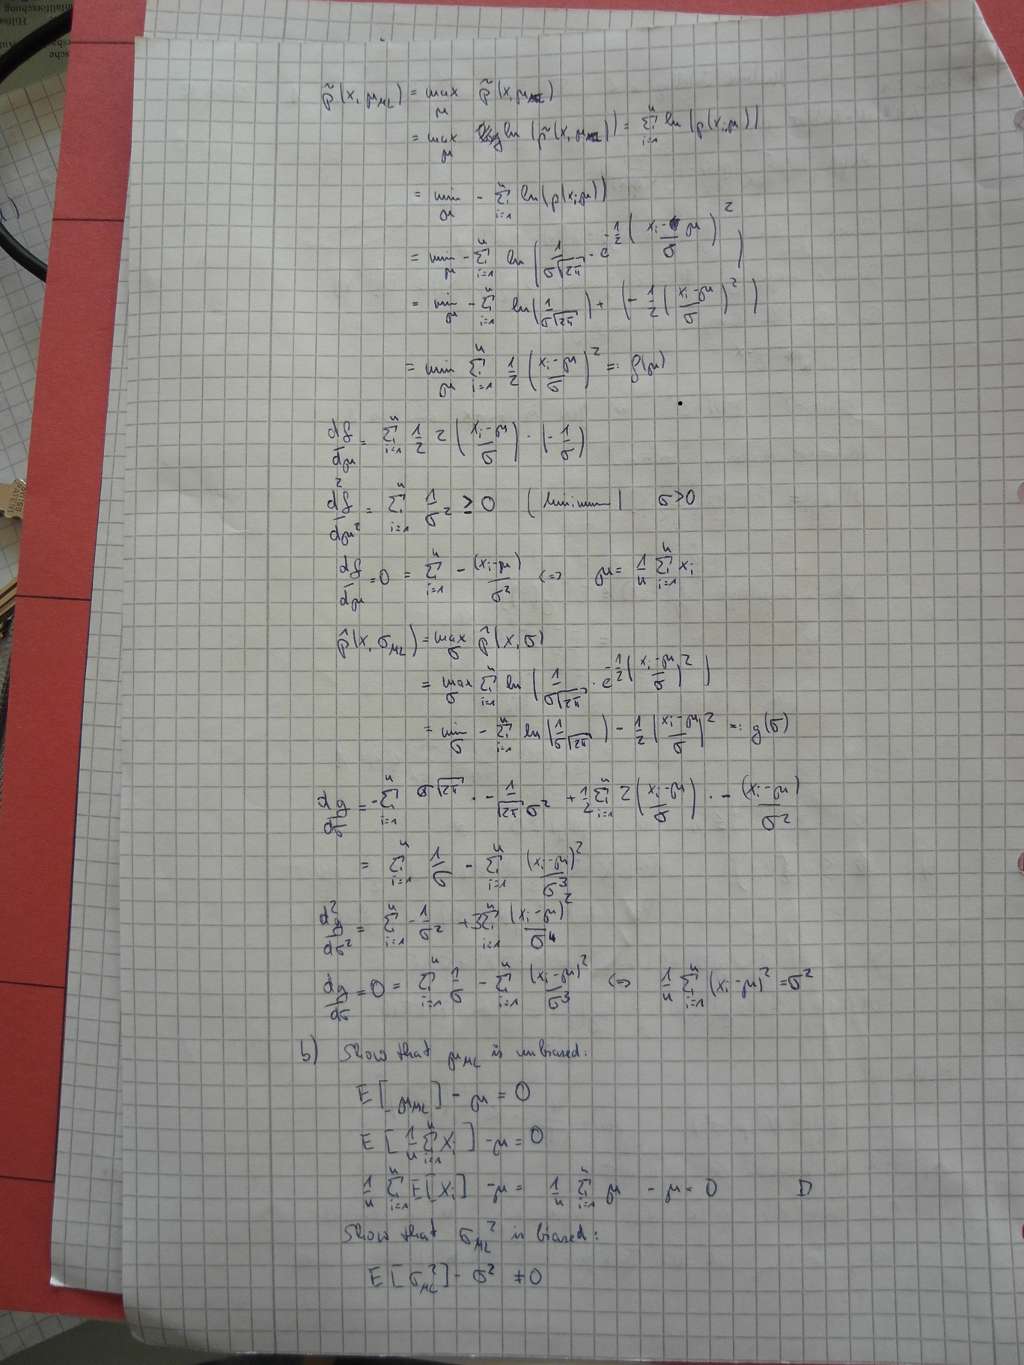 p̃(x, μ_ML) = max_μ p̃(x, μ)
= max_μ ln(p̃(x, μ)) = Σ_{i=1}^n ln(p(x_i, μ))
= min_μ - Σ_{i=1}^n ln(p(x_i, μ))
= min_μ - Σ_{i=1}^n ln( 1/(σ√(2π)) · e^{-1/2 ((x_i - μ)/σ)^2} )
= min_μ - Σ_{i=1}^n ln(1/(σ√(2π))) + (-1/2 ((x_i - μ)/σ)^2)
= min_μ Σ_{i=1}^n 1/2 ((x_i - μ)/σ)^2 =: f(μ)
df/dμ = Σ_{i=1}^n 1/2 2 ((x_i - μ)/σ) · (-1/σ)
d^2f/dμ^2 = Σ_{i=1}^n 1/σ^2 ≥ 0 (Minimum) σ>0
df/dμ = 0 = Σ_{i=1}^n - (x_i - μ)/σ^2 ⇔ μ = 1/n Σ_{i=1}^n x_i
p̂(x, σ_ML) = max_σ p̂(x, σ)
= max_σ Σ_{i=1}^n ln( 1/(σ√(2π)) · e^{-1/2 ((x_i - μ)/σ)^2} )
= min_σ - Σ_{i=1}^n ln(1/(σ√(2π))) - 1/2 ((x_i - μ)/σ)^2 =: g(σ)
dg/dσ = - Σ_{i=1}^n σ√(2π) · - 1/(√(2π) σ^2) + 1/2 Σ_{i=1}^n 2 ((x_i - μ)/σ) · - (x_i - μ)/σ^2
= Σ_{i=1}^n 1/σ - Σ_{i=1}^n (x_i - μ)^2/σ^3
d^2g/dσ^2 = Σ_{i=1}^n - 1/σ^2 + 3 Σ_{i=1}^n (x_i - μ)^2/σ^4
dg/dσ = 0 = Σ_{i=1}^n 1/σ - Σ_{i=1}^n (x_i - μ)^2/σ^3 ⇔ 1/n Σ_{i=1}^n (x_i - μ)^2 = σ^2
b) Show that μ_ML is unbiased:
E[μ_ML] - μ = 0
E[1/n Σ_{i=1}^n x_i] - μ = 0
1/n Σ_{i=1}^n E[x_i] - μ = 1/n Σ_{i=1}^n μ - μ = 0 □
Show that σ_ML^2 is biased:
E[σ_ML^2] - σ^2 ≠ 0